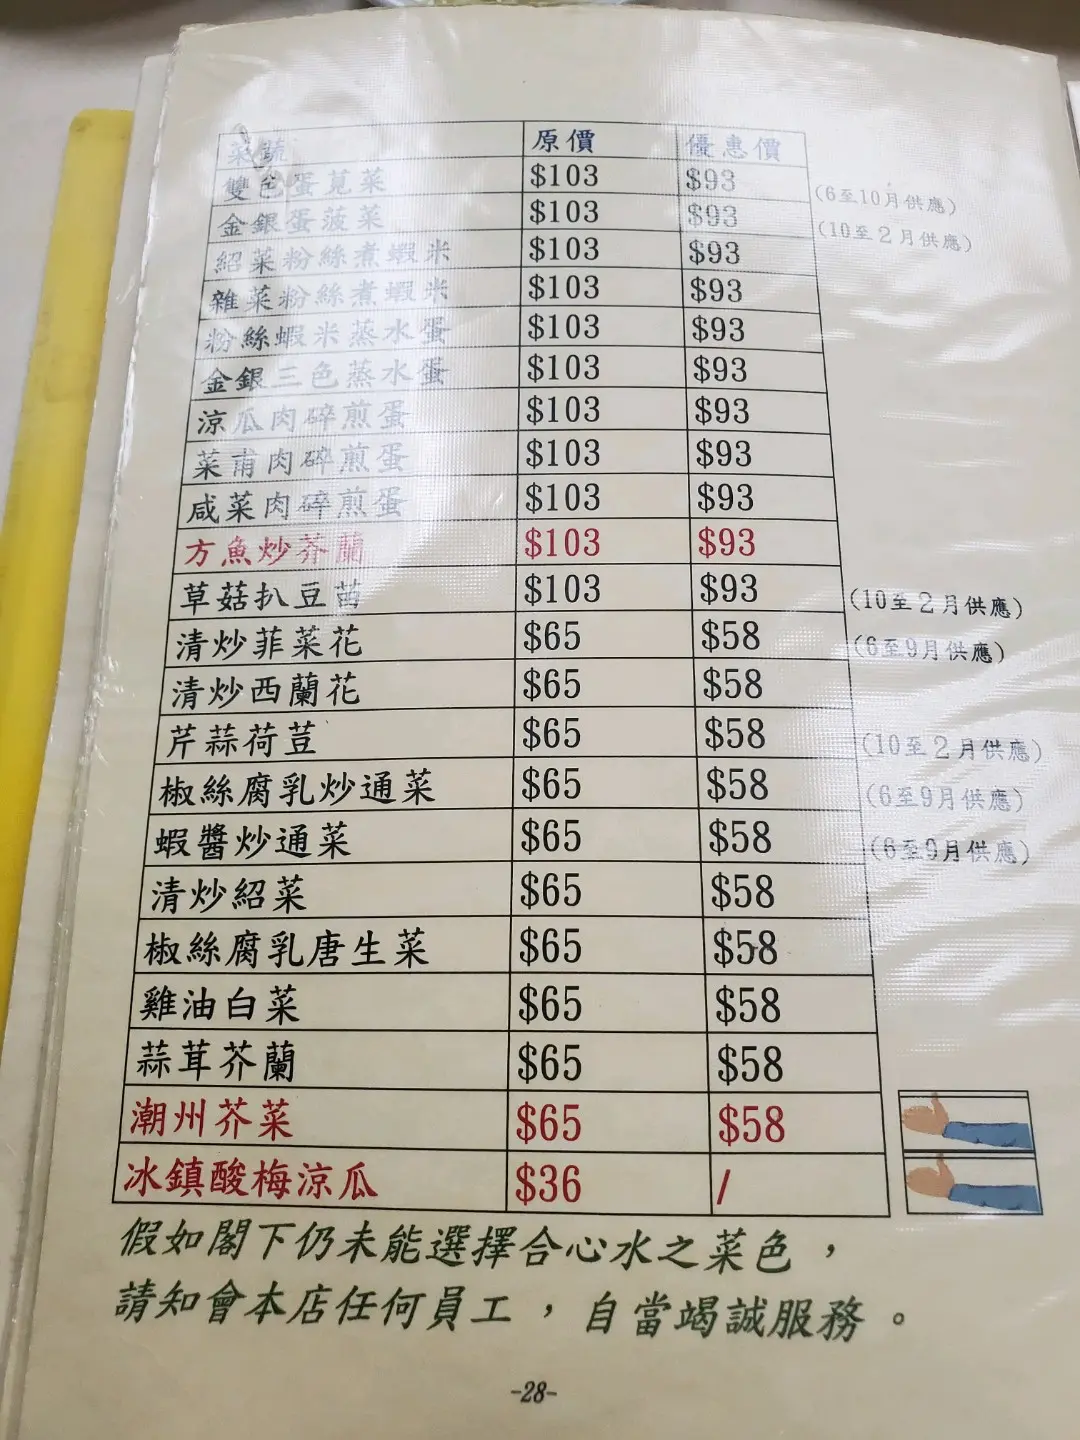 菜蔬 原價 優惠價
雙色蛋莧菜 $103 $93 (6至10月供應)
金銀蛋菠菜 $103 $93 (10至2月供應)
紹菜粉絲煮蝦米 $103 $93
雜菜粉絲煮蝦米 $103 $93
粉絲蝦米蒸水蛋 $103 $93
金銀三色蒸水蛋 $103 $93
涼瓜肉碎煎蛋 $103 $93
菜甫肉碎煎蛋 $103 $93
咸菜肉碎煎蛋 $103 $93
方魚炒芥蘭 $103 $93
草菇扒豆苗 $103 $93 (10至2月供應)
清炒菲菜花 $65 $58 (6至9月供應)
清炒西蘭花 $65 $58
芹蒜荷荳 $65 $58 (10至2月供應)
椒絲腐乳炒通菜 $65 $58 (6至9月供應)
蝦醬炒通菜 $65 $58 (6至9月供應)
清炒紹菜 $65 $58
椒絲腐乳唐生菜 $65 $58
雞油白菜 $65 $58
蒜茸芥蘭 $65 $58
潮州芥菜 $65 $58
冰鎮酸梅涼瓜 $36 /
假如閣下仍未能選擇合心水之菜色，
請知會本店任何員工，自當竭誠服務。
-28-